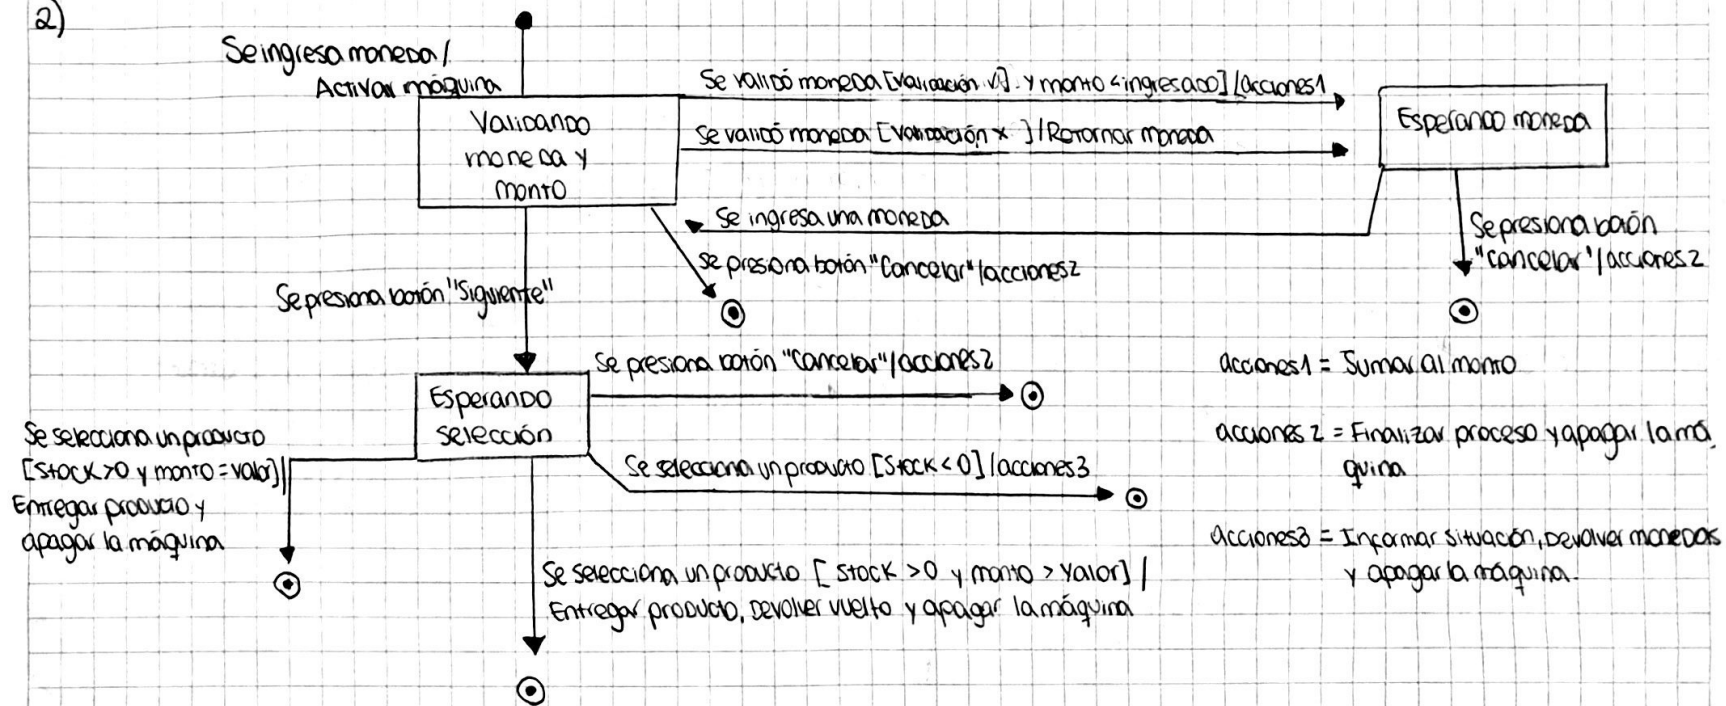 2)
Se ingresa moneda /
Activar máquina
Validando
moneda y
monto
Se validó moneda [Validación √]. y monto < ingresado] / acciones1
Se validó moneda [Validación x ] / Retornar moneda
Esperando moneda
Se ingresa una moneda
Se presiona botón "Cancelar" / acciones2
Se presiona botón
"cancelar" / acciones2
Se presiona botón "Siguiente"
Se presiona botón "Cancelar" / acciones2
Esperando
selección
Se selecciona un producto
[Stock>0 y monto=valor] /
Entregar producto y
apagar la máquina
Se selecciona un producto [Stock<0] / acciones3
Se selecciona un producto [Stock >0 y monto > valor] /
Entregar producto, devolver vuelto y apagar la máquina
acciones1 = Sumar al monto
acciones2 = Finalizar proceso y apagar la má
quina
acciones3 = Informar situación, devolver monedas
y apagar la máquina.